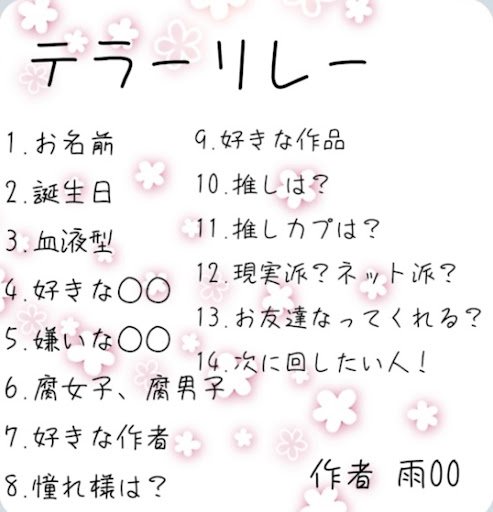 テラーリレー
1.お名前
2.誕生日
3.血液型
4.好きな○○
5.嫌いな○○
6.腐女子、腐男子
7.好きな作者
8.憧れ様は?
9.好きな作品
10.推しは?
11.推しカプは?
12.現実派?ネット派?
13.お友達なってくれる?
14.次に回したい人!
作者 雨00